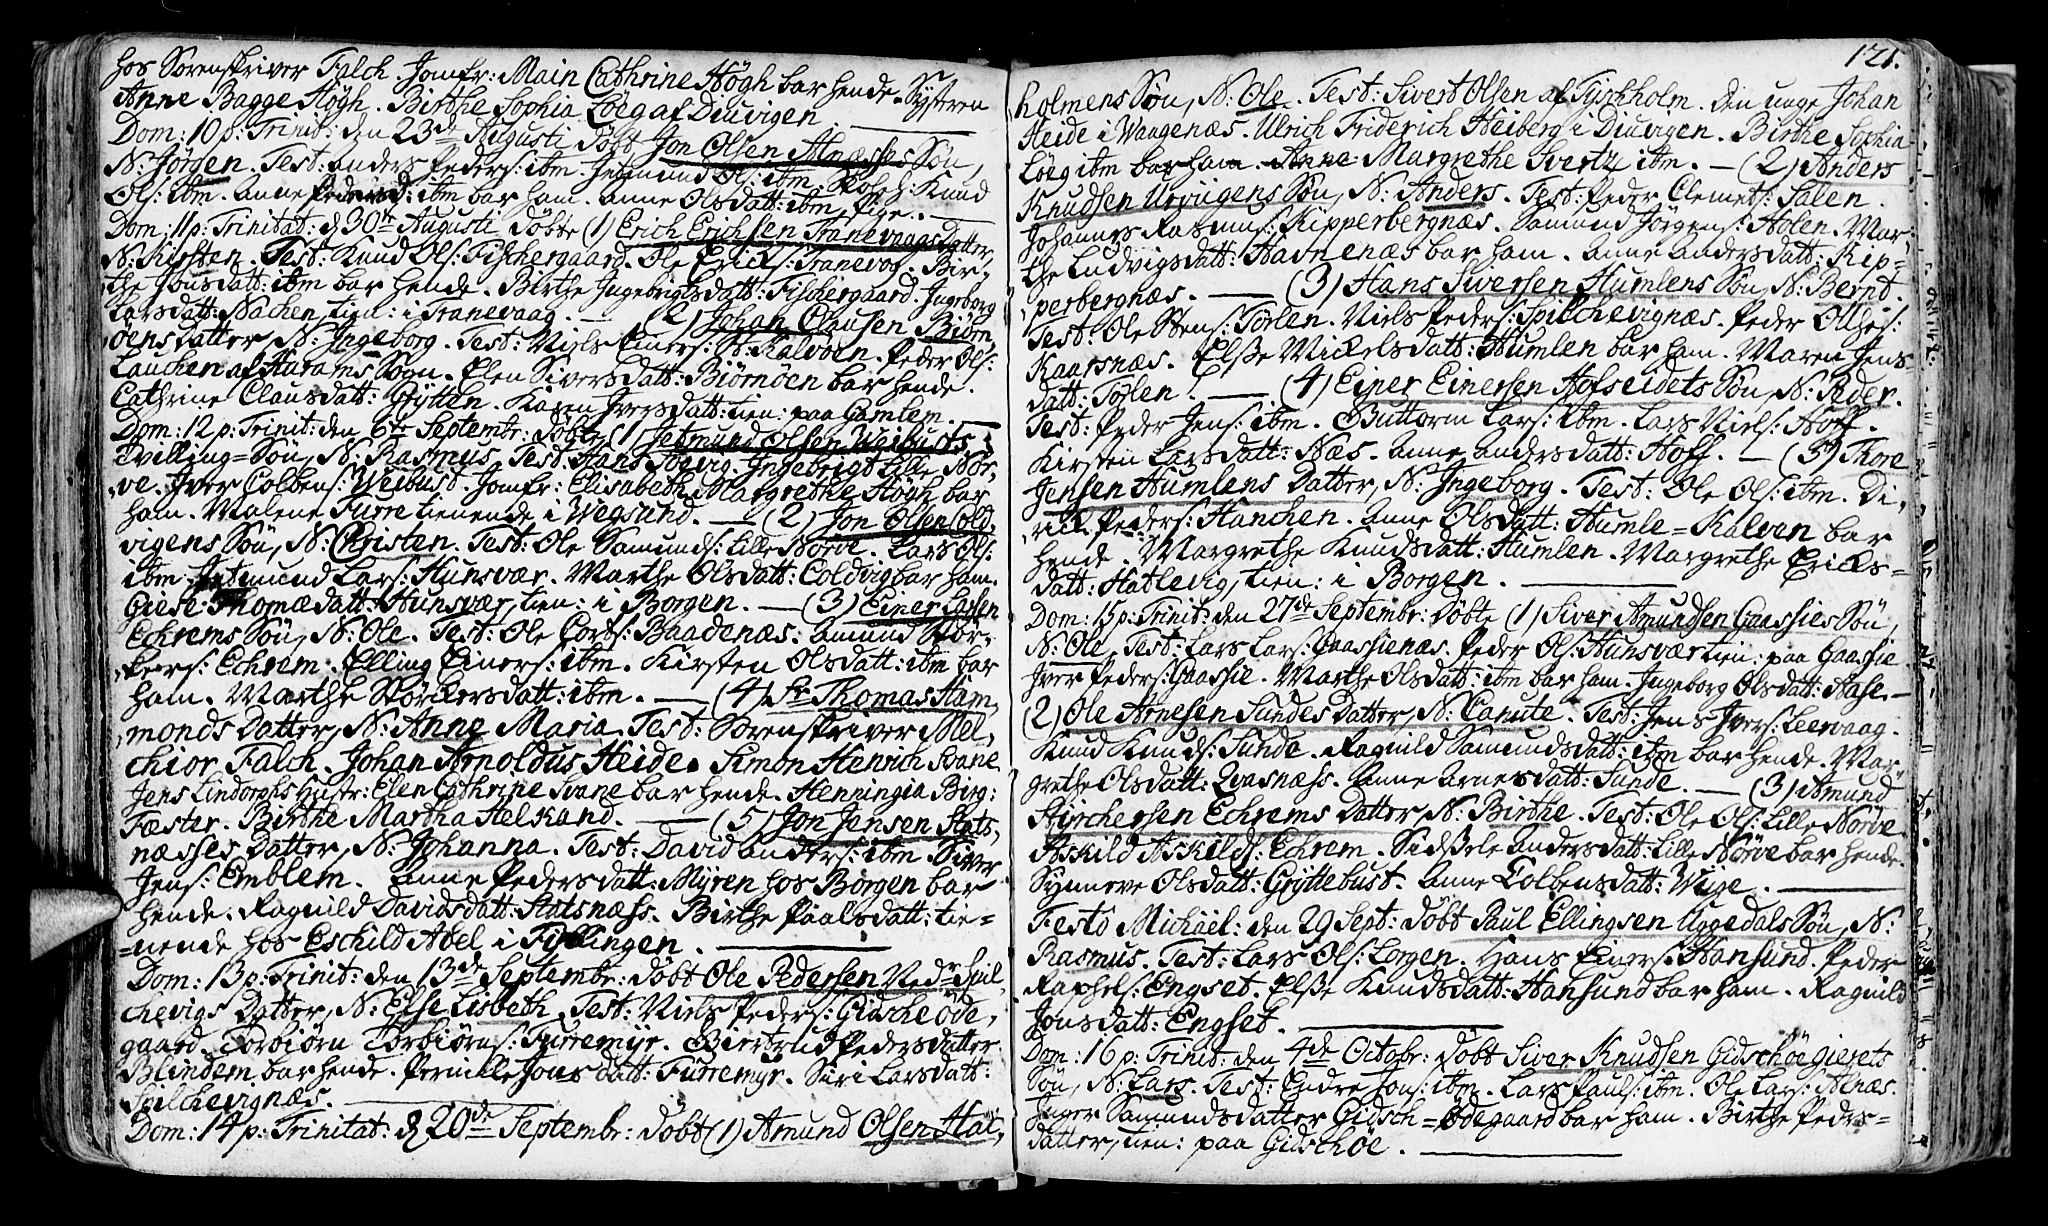 hos Sorenskriver Falch. Jomfr: Main Cathrine Høgh bar hende. Systeren
Anne Bagge Høgh. Birthe Sophia Løeg af Diuvigen.
Dom: 10 p: Trinit: den 23de Augusti døbt Jon Olsen Alnesses Søn,
N: Jørgen. Test: anders Peders: ibm. Jetmund Ols: ibm. Knud
Ols: ibm. Anne Pedersd: ibm bar ham. Anne Olsdatt: ibm, Pige.
Dom: 11 p: Trinitat: d 30te Augusti døbte (1) Erich Erichsen Tranevaags Datter,
N: Kirsten. Test: Knud Ols: Fischergaard. Ole Ericks: Tranevog. Bir,,
the Jonsdatt: ibm bar hende. Birthe Ingebrigtsdatt: Fischergaard. Ingeborg
Larsdatt: Nachen, tien: i Tranevaag. — (2) Johan Clausen Biørn,,
øens datter, N: Ingeborg. Test: Niels Einers: St: Kalvøen. Peder Ols:
Lauchen af Harams Sogn. Elen Siversdatt: Biørnøen bar hende.
Cathrine Clausdatt: Grÿtten. Karen Iversdatt: tien: paa Gamlem.
Dom: 12 p: Trinit: den 6te Septembr: døbtes (1) Jetmund Olsen Weibusts
Tvilling=Søn, N: Rasmus. Test: Hans Søgvig. Ingebrigt Lille Nør,,
ve. Iver Colbens: Weibust. Jomfr: Elisabeth Margrethe Høgh bar
ham. Malene Furre tienende i Wegsund. — (2) Jon Olsen Cold,,
vigens Søn, N: Christen. Test: Ole Samunds: Lille Nørve. Lars Ols:
ibm. Jetmund Lars: Hunsvær. Marthe Olsdatt: Coldvig bar ham.
Giese Thomædatt: Hunsvær, tien: i Borgen. — (3) Einer Larsen
Echrems Søn, N: Ole. Test: Ole Corts: Baadenæs. Amund Stør,,
kers: Echrem. Elling Einers: ibm. Kirsten Olsdatt: ibm bar
ham. Marthe Størkersdatt: ibm. — (4) Sr Thomas Ham,,
monds Datter, N: Anne Maria. Test: Sorenskriver Mel,,
chior Falch. Johan Arnoldus Heide. Simon Henrich Svane
Jens Lindorphs Hustr: Elen Cathrine Svane bar hende. Henningia Birg:
Fæster. Birthe Martha Helkand. — (5) Jon Jensen Slats,,
næsses Datter, N: Johanna. Test: David anders: ibm. Siver
Jens: Emblem. Anne Pedersdatt: Mÿren hos Borgen bar
hende. Ragnild Davidsdatt: Slatsnæss. Birthe Paalsdatt: tie=
=nende hos Eschild Abel i Fyllingen.
Dom: 13 p: Trinit: den 13de Septembr: døbt Ole Pedersen Nedre Spil,,
chevigs Datter, N: Else Lisbeth. Test: Niels Peders: Gidsche Øde,,
gaard. Torbiørn Torbiørns: Furremyr. Biertrud Pedersdatter
Blindem bar hende. Pernille Jonsdatt: Furremyr. Siri Larsdatt:
Spilchevignæs.
Dom: 14 p: Trinitat: d 20de Septembr: døbt (1) Amund Olsen Hat,,
121.
holmens Søn, N: Ole. Test: Sivert Olsen af Tyschholm. Den unge Johan
Heide i Waagenæs. Ulrich Friderich Heiberg i Diuvigen. Birthe Sophia
Løeg ibm bar ham. Anne Margrethe Svertz ibm. — (2) Anders
Knudsen Urvigens Søn, N: Anders. Test: Peder Clemets: Salen.
Johannes Rasmus: Kipperbergnæs. Samund Jørgens: Holen. Mar,,
the Ludvigsdatt: Havnenæs bar ham. Anne Andersdatt: Kip=
perbergnæs. — (3) Hans Siversen Humlens Søn, N: Bernt.
Test: Ole Stens: Tørlen. Niels Peders: Spilchevignæs. Peder Olthes:
Kaarsnæs. Elsße Mickelsdatt: Humlen bar ham. Maren Jens=
datt: Tørlen. — (4) Einer Einersen Hofseidets Søn, N: Peder.
Test: Peder Jens: ibm. Buttorm Lars: ibm. Lars Niels: Hoff.
Kirsten Larsdatt: Næs. Anne Andersdatt: Hoff. — (5) Thore
Jensen Humlens Datter, N: Ingeborg. Test: Ole Ols: ibm. Di,,
rik Peders: Hanchen. Anne Olsdatt: Humle=Kalven bar
hende. Margrethe Knudsdatt: Humlen. Margrethe Ericks=
datt: Hatlevig, tien: i Borgen.
Dom: 15 p: Trinit: den 27de Septembr: døbte (1) Siver Amundsen Gaassies Søn,
N: Ole. Test: Lars Lars: Gaassienæs. Peder Ols: Hunsvær tien: paa Gaassie
Iver Peders: Gaassie. Marthe Olsdatt: ibm bar ham. Ingeborg Olsdatt: Aase. —
(2) Ole Arnesen Sundes Datter, N: Canute. Test: Jens Ivers: Leervaag.
Knud Knuds: Sunde. Ragnild Samundsdatt: ibm bar hende. Mar,,
grethe Olsdatt: Qvasnæss. Anne Arnesdatt: Sunde. — (3) Amund
Stirchersen Echrems Datter, N: Birthe. Test: Ole Ols: Lille Nørve.
Askild Askilds: Echrem. Sidßele Andersdatt: Lille Nørve bar hende.
Synneve Olsdatt: Grÿttebust. Anne Colbensdatt: Wiige.
Festo Michäel: den 29 Sept: døbt Paul Ellingsen Uggedals Søn, N:
Rasmus. Test: Lars Ols: Lorgen. Hans Einers: Hansund. Peder
Raphels: Engset. Elße Knudsdatt: Hansund bar ham. Ragnild
Jonsdatt: Engset.
Dom: 16 p: Trinit: den 4de Octobr: døbt Siver Knudsen Gidschøegierets
Søn, N: Lars. Test: Endre Jons: ibm. Lars Pauls: ibm. Ole Lars: Alnæs.
Inger Samundsdatter Gidsch=Ødegaard bar ham. Birthe Peders=
datter, tien: paa Gidschøe.